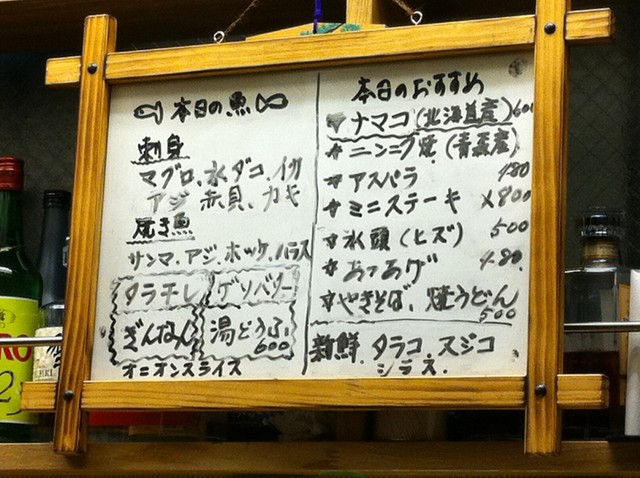 本日の魚
刺身
マグロ、水ダコ、イカ
アジ 赤貝、カキ
焼き魚
サンマ、アジ、ホッケ、ハラス
タラチレ ゲソバター
ぎんなん 湯どうふ
600
オニオンスライス
本日のおすすめ
ナマコ(北海道産)600
ニンニク焼(青森産)
アスパラ 480
ミニステーキ ¥800
氷頭(ヒズ) 500
あつあげ 480.
やきそば、焼うどん
500
新鮮、タラコ、スジコ
シラス.